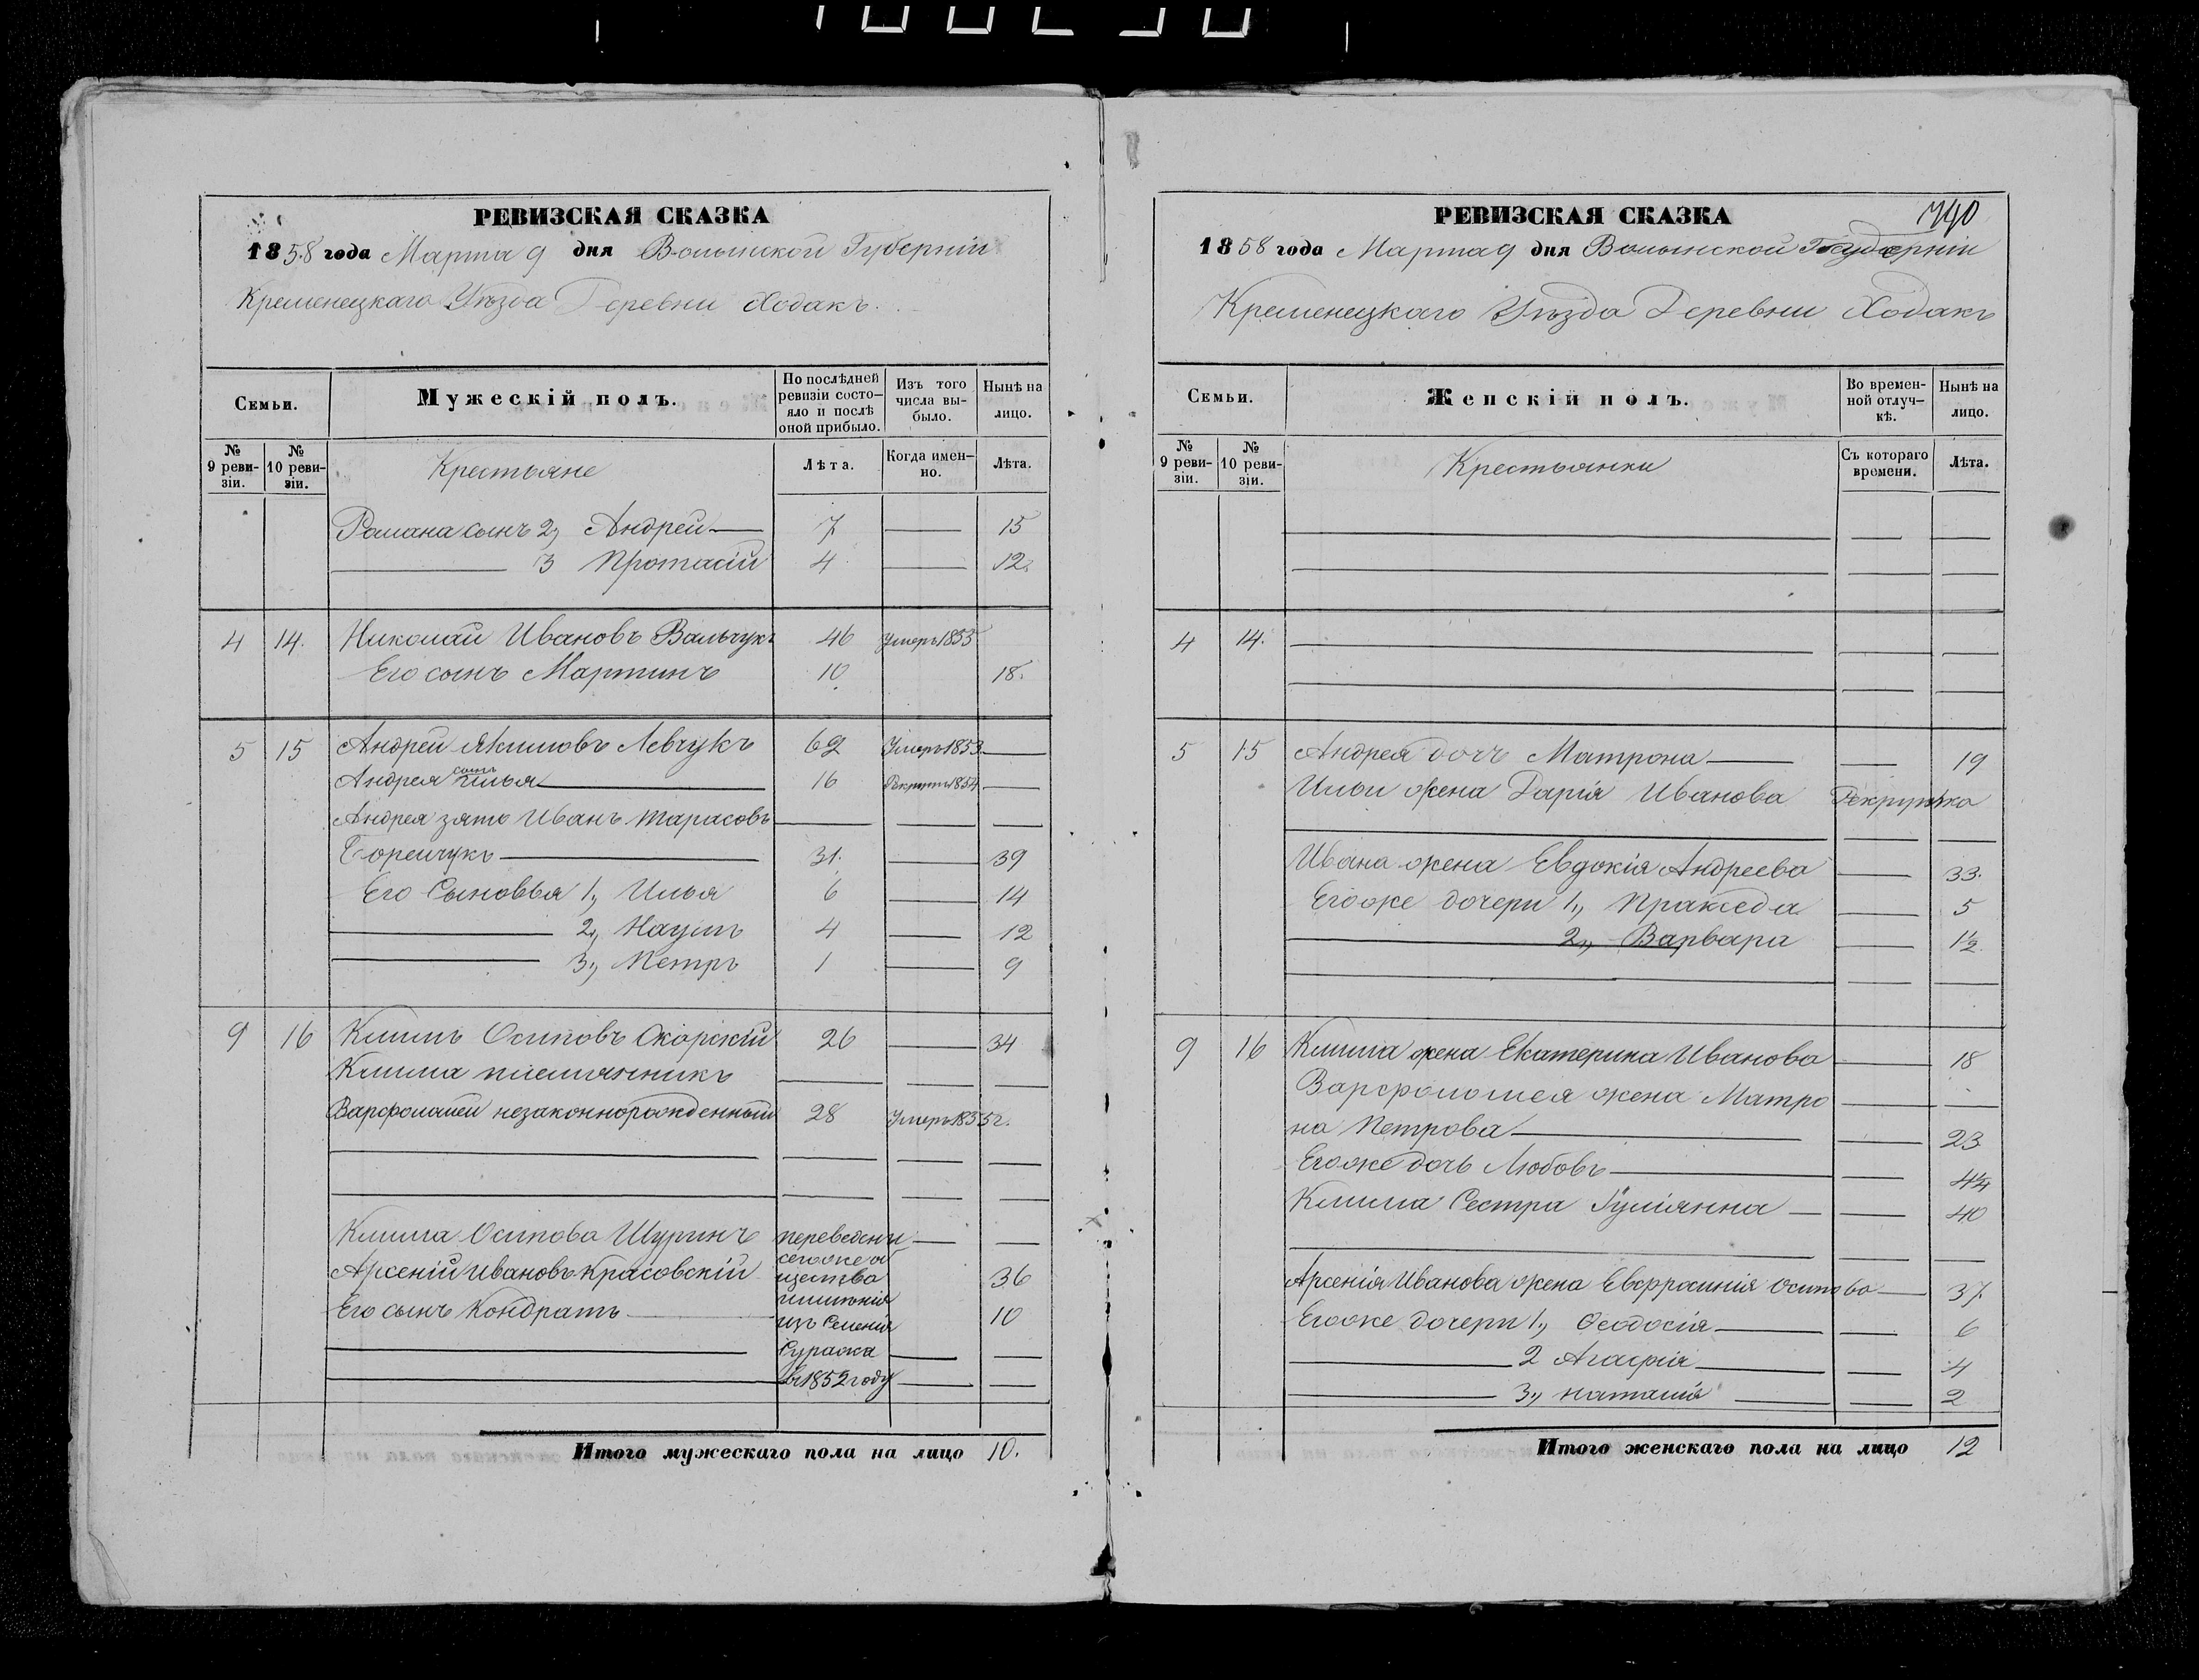 РЕВИЗСКАЯ СКАЗКА
1858 года Марта 9 дня Волынской Губерніи
Кременецкаго Уѣзда Деревни Ходакъ.
Семьи.
Мужескій полъ.
По послѣдней ревизіи состо-
яло и послѣ
оной прибыло.
Изъ того
числа вы-
было.
Нынѣ на
лицо.
№ 9 реви-
зіи.
№ 10 реви-
зіи.
Крестьяне
Лѣта.
Когда имен-
но.
Лѣта.
Романа сынъ 2, Андрей 7 15
3 Протасій 4 12.
4 14. Николай Ивановъ Вальчукъ 46 Умеръ 1853
Его сынъ Мартинъ 10 18.
5 15 Андрей Якимовъ Левчукъ 62 Умеръ 1853
Андрея сынъ Илья 16 Рекрутъ 1854
Андрея зять Иванъ Тарасовъ
31. 39
Его Сыновья 1, Илья 6 14
2, Наумъ 4 12
3, Петръ 1 9
9 16 Климъ Осиповъ Скарскій 26 34
Клима племянникъ
Варфоломей незаконнорожденный 28 Умеръ 1855 г.
Клима Осипова Шуринъ переведены
Арсеній Ивановъ Красовскій сегоже об
щества
имѣнія 36
Его сынъ Кондратъ изъ Селенія 10
Суража
въ 1852 году
Итого мужескаго пола на лицо 10.
РЕВИЗСКАЯ СКАЗКА
740
1858 года Марта 9 дня Волынской Губерніи
Кременецкаго Уѣзда Деревни Ходакъ
Семьи.
Женскій полъ.
Во времен-
ной отлуч-
кѣ.
Нынѣ на
лицо.
№ 9 реви-
зіи.
№ 10 реви-
зіи.
Крестьянки
Съ котораго
времени.
Лѣта.
4 14.
5 15 Андрея дочь Матрона 19
Ильи жена Дарія Иванова Рекрутка
Ивана жена Евдокія Андреева 33.
Егоже дочери 1, Праксѣда 5
2, Варвара 1½
9 16 Клима жена Екатерина Иванова 18
Варфоломея жена Матро
на Петрова 23
Егоже дочь Любовь 4¼
Клима Сестра Іуліянна 40
Арсенія Иванова жена Евфросинія Осипова 37.
Егоже дочери 1, Ѳеодосія 6
2 Агафія 4
3, Наталія 2
Итого женскаго пола на лицо 12